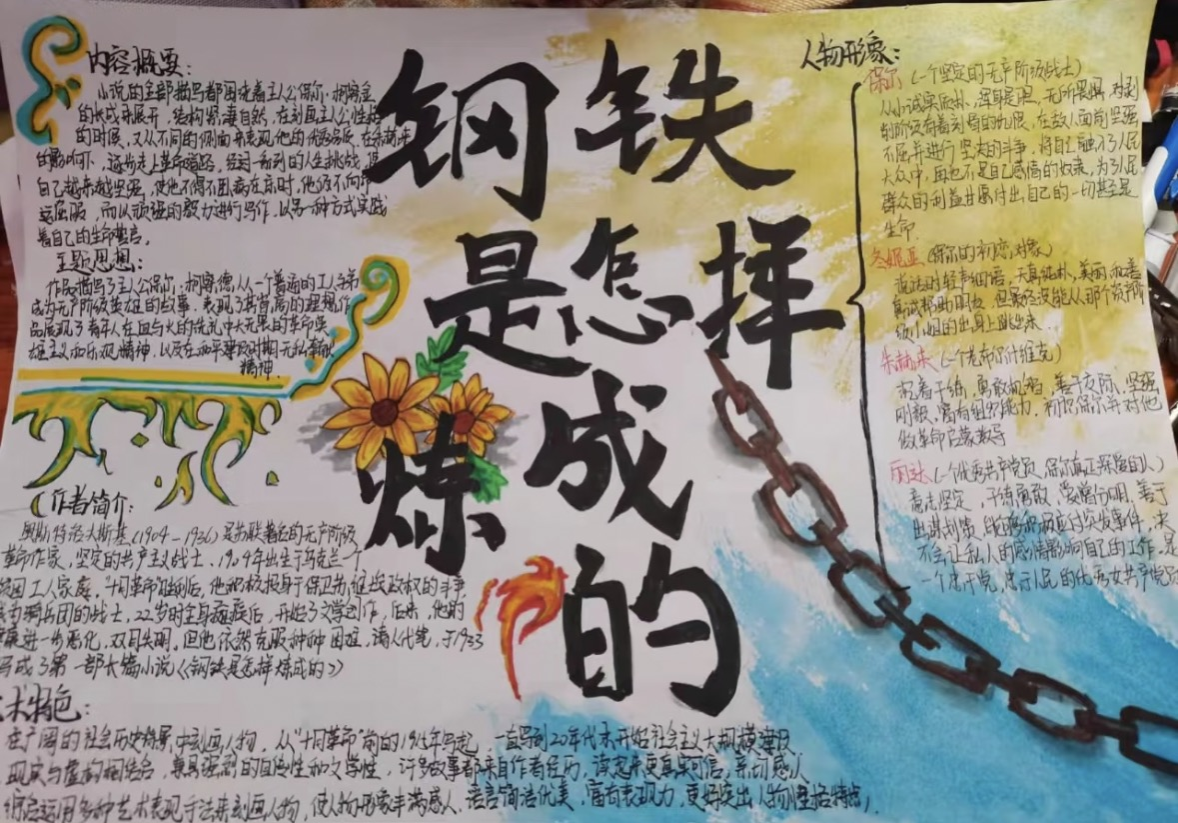 内容概要：
小说的全部描写都围绕着主人公保尔·柯察金
的成长来展开，结构紧凑自然，在刻画主人公性格
的时候，又从不同的侧面来表现他的优秀品质，在朱赫来
的影响下，逐步走上革命道路，经过一系列的人生挑战，
自己越来越坚强，使他不得不困病在床时，他仍不向命
运屈服，而以顽强的毅力进行写作，以另一种方式实践
着自己的生命誓言。
主题思想：
作品描写了主人公保尔·柯察德从一个普通的工人子弟
成为无产阶级英雄的故事，表现了其崇高的理想，作
品展现了青年人在血与火的洗礼中大无畏的革命英
雄主义和乐观精神，以及在和平建设时期无私奉献
精神。
作者简介：
奥斯特洛夫斯基（1904-1936）是苏联著名的无产阶级
革命作家，坚定的共产主义战士，1904年出生于乌克兰一个
贫困工人家庭，十月革命胜利后，他积极投身于保卫苏维埃政权的斗争
成为骑兵团的战士，22岁时全身瘫痪后，开始了文学创作，后来，他的
进一步恶化，双目失明，但他依然克服种种困难，请人代笔，于1933
写成了第一部长篇小说《钢铁是怎样炼成的》
术特色：
在广阔的社会历史背景中刻画人物，从“十月革命”前的1915年写起，一直写到20年代末开始社会主义大规模建设
现实与虚构相结合，兼具强烈的自传性和文学性，许多故事都来自作者经历，读起来更真实可信，亲切感人
运用多种艺术表现手法来刻画人物，使人物形象丰满感人，语言简洁优美，富有表现力，更好突出人物性格特点。
钢铁
是怎样
炼成
的
人物形象：
保尔（一个坚定的无产阶级战士）
从小诚实质朴，浑身是胆，无所畏惧，对剥
削阶级有着刻骨的仇恨，在敌人面前坚强
不屈并进行坚决的斗争，将自己融入了人民
大众中，再也不是自己感情的奴隶，为了人民
群众的利益甘愿付出自己的一切甚至是
生命。
冬妮亚（保尔的初恋对象）
说话时轻声细语，天真纯朴，美丽和善
真诚帮助朋友，但最终没能从那个资产阶
级小姐的出身上跳出来
朱赫来（一个老布尔什维克）
沉着干练，勇敢机智，善于交际，坚强
刚毅，富有组织能力，初识保尔并对他
做革命启蒙教导
丽达（一个优秀共产党员，保尔真正深爱的人）
意志坚定，干练勇敢，赏罚分明，善于
出谋划策，能够和应对突发事件，决
不会让私人的感情影响自己的工作，是
一个忠于党，忠于人民的优秀女共产党员